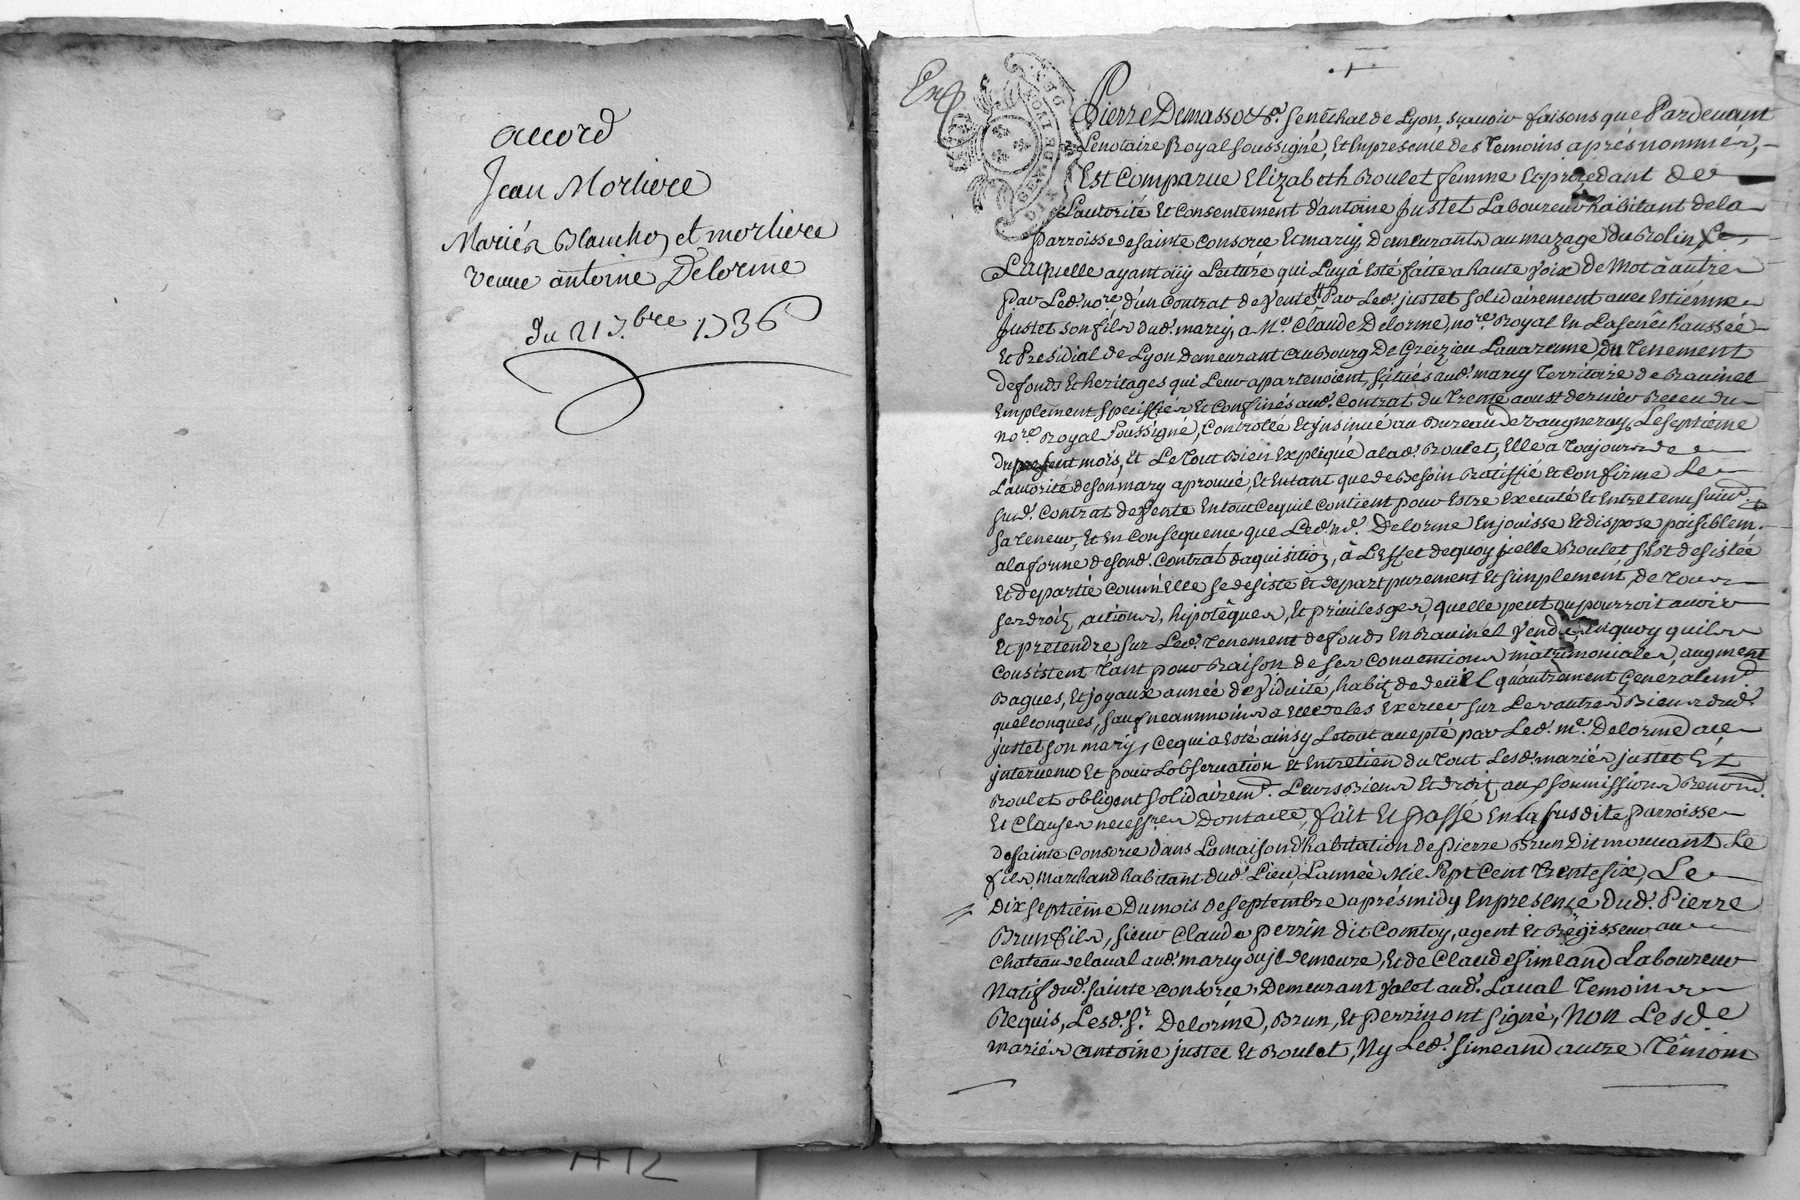 accord
Jean Morliere
Mariés Blanchoz et morliere
veuve antoine Delorme
du 21 7.bre 1736
Pierre Demasso &c.a senêchal de Lyon, sçavoir faisons que Pardevant
Lenotaire Royal soussigné, Et Enpresence des Temoins aprés nommés,
Est Comparue Elizabeth Roulet femme Et procedant de
L'autorité Et consentement d'antoine Justet Laboureur habitant de la
Parroisse de sainte consorce Et marcy, demeurants au mazage du Rolin, Le
Laquelle ayant oüy Lecture qui Luy à Esté faite a haute voix de Mot à autre
Par Led. nore. d'un Contrat de Vente Par Led. justet solidairement avec Estienne
Justet son fils dud. marcy, a Me. Claude Delorme, nore. Royal En La senêchaussée
Et Presidial de Lyon demeurant au Bourg De Greizieu Lavarenne, du Tenement
de fonds Et heritages qui Leur apartenoient, situés aud. marcy Territoire de Ravinel
Emplement speciffiés Et Confinés aud. Contrat du Trente aoust dernier Receu du
nore. Royal soussigné, Controllé Et insinué au Bureau de vaugneray, Le septieme
du present mois, Et Le Tout Bien Expliqué a lad. Roulet, Elle a Toujours de
L'autorité de son mary aprouvé, Et Entant que de Besoin Ratiffié Et Confirme Le
sud. Contrat de Vente En tout Cequil contient pour Estre Executé Et Entretenu suivt.
sa teneur, Et En Consequence que Led. Me. Delorme En jouisse Et dispose paisiblemt.
a la forme desond. Contrat d'aquisition, à L'Effet dequoy icelle Roulet s'est desistée
Et departie comm'elle se desiste Et depart purement Et simplement, de Tous
ses droits, actions, hipotêques, Et privileges, quelle peut ou pourroit avoir
Et pretendre sur Led. Tenement de fonds En Ravinel Vendu, en quoy quils
Consistent Tant pour Raison de ses conventions matrimoniales, augment
Bagues, Et joyaux année de Viduité, habits de deüil qu'autrement Generalemt.
quelconques, sauf neammoins a Elle de les Exercer sur Les autres Biens dud.
justet son mary, Ce qui a Esté ainsy Le tout accepté par Led. me. Delorme ace
intervenu Et pour L'observation Et Entretien du Tout Lesd. mariés justet Et
Roulet obligent solidairemt. Leurs Biens Et droits aux soumissions Renond.
Et Clauses necessres. Dont acte, fait Et Passé En La susdite parroisse
de sainte consorce dans La maison d'habitation de Pierre Brun dit mouvant Le
fils, marchand habitant dud. Lieu, L'année Mil Sept Cent Trente six, Le
Dix septième Du mois de septembre aprés midy En presence dud. Pierre
Brun fils, sieur Claude Perrin dit Comtoy, agent Et Regisseur au
Chateau de laval aud. marcy ou il demeure, Et de Claude simeand Laboureur
Natif dud. sainte consorce, Demeurant valet aud. Laval Temoins
Requis, Lesd. sr. Delorme, Brun, Et Perrin ont signé, Non Lesde
mariés antoine justet Et Roulet, Ny Led. simeand autre Témoin